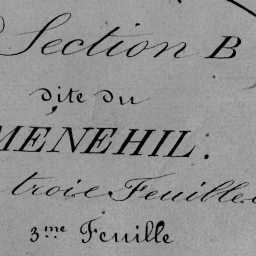 Section B
dite du
MÉNÉHIL.
trois Feuilles
3.me Feuille